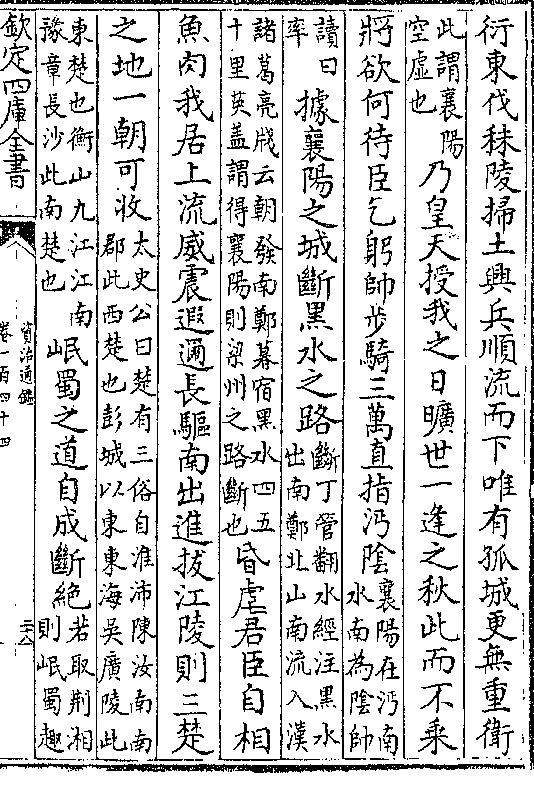 衍東伐秣陵掃土興兵順流而下唯有孤城更無重衛
此謂襄陽空虛也乃皇天授我之日曠世一逢之秋此而不乗
將欲何待臣乞躬帥步騎三萬直指沔隂襄陽在沔南水南為隂帥
讀曰率據襄陽之城斷黒水之路斷丁管翻水經注黒水出南鄭北山南流入漢
諸葛亮牋云朝發南鄭暮宿黒水四五十里英蓋謂得襄陽則梁州之路斷也昏虐君臣自相
魚肉我居上流威震遐邇長驅南出進拔江陵則三楚
之地一朝可收太史公曰楚有三俗自淮沛陳汝南南郡此西楚也彭城以東東海吳廣陵此
東楚也衡山九江江南豫章長沙此南楚也岷蜀之道自成斷絶若取荆湘則岷蜀趣
欽定四庫全書
資治通鑑
卷一百四十四